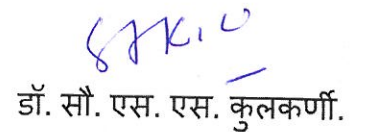 डॉ. सौ. एस. एस. कुलकर्णी.